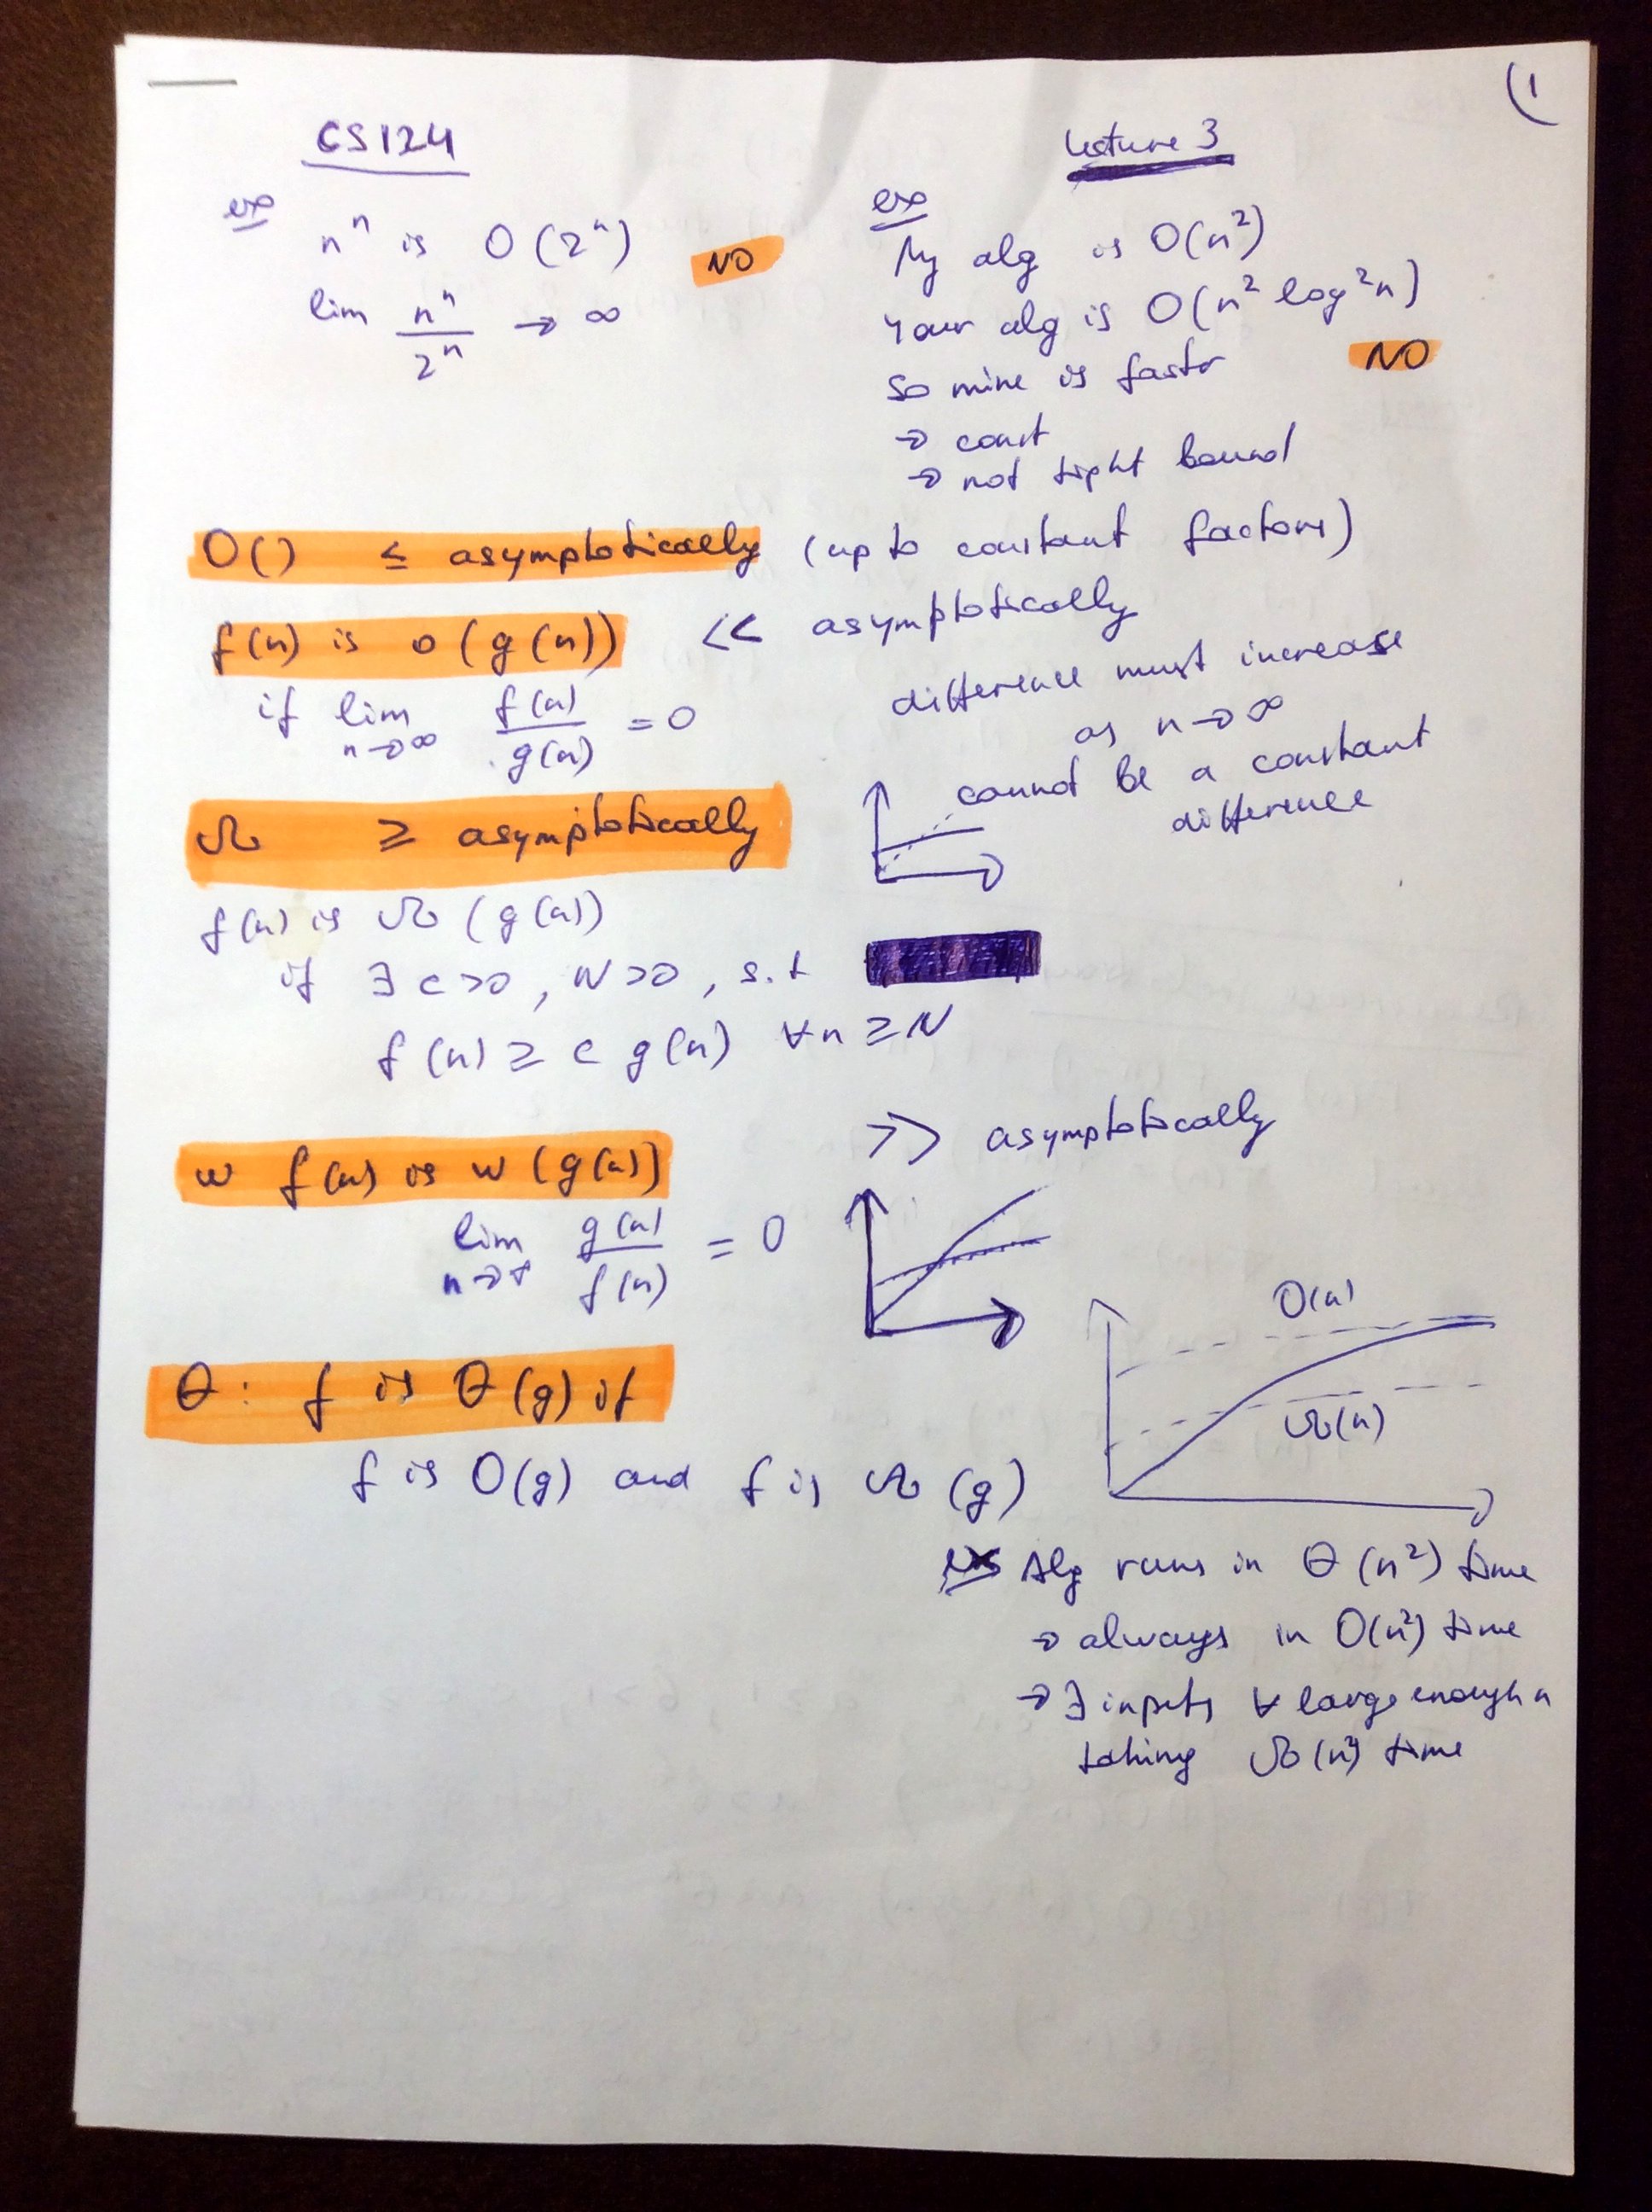 (1
CS124
Lecture 3
ex
n^n is O(2^n) NO
lim n^n / 2^n → ∞
ex
My alg is O(n²)
Your alg is O(n² log²n)
So mine is fastr NO
→ const
→ not tight bound
O() ≤ asymptotically (up to constant factors)
f(n) is o(g(n)) << asymptotically
if lim n→∞ f(n)/g(n) = 0
difference must increase
as n→∞
cannot be a constant
difference
Ω ≥ asymptotically
f(n) is Ω(g(n))
if ∃ c>0, N>0, s.t
f(n) ≥ c g(n) ∀n ≥ N
ω f(n) is ω(g(n)) >> asymptotically
lim n→∞ g(n)/f(n) = 0
O(n)
Ω(n)
θ: f is θ(g) if
f is O(g) and f is Ω(g)
ex Alg runs in θ(n²) time
→ always in O(n²) time
→ ∃ inputs ∀ large enough n
taking Ω(n²) time